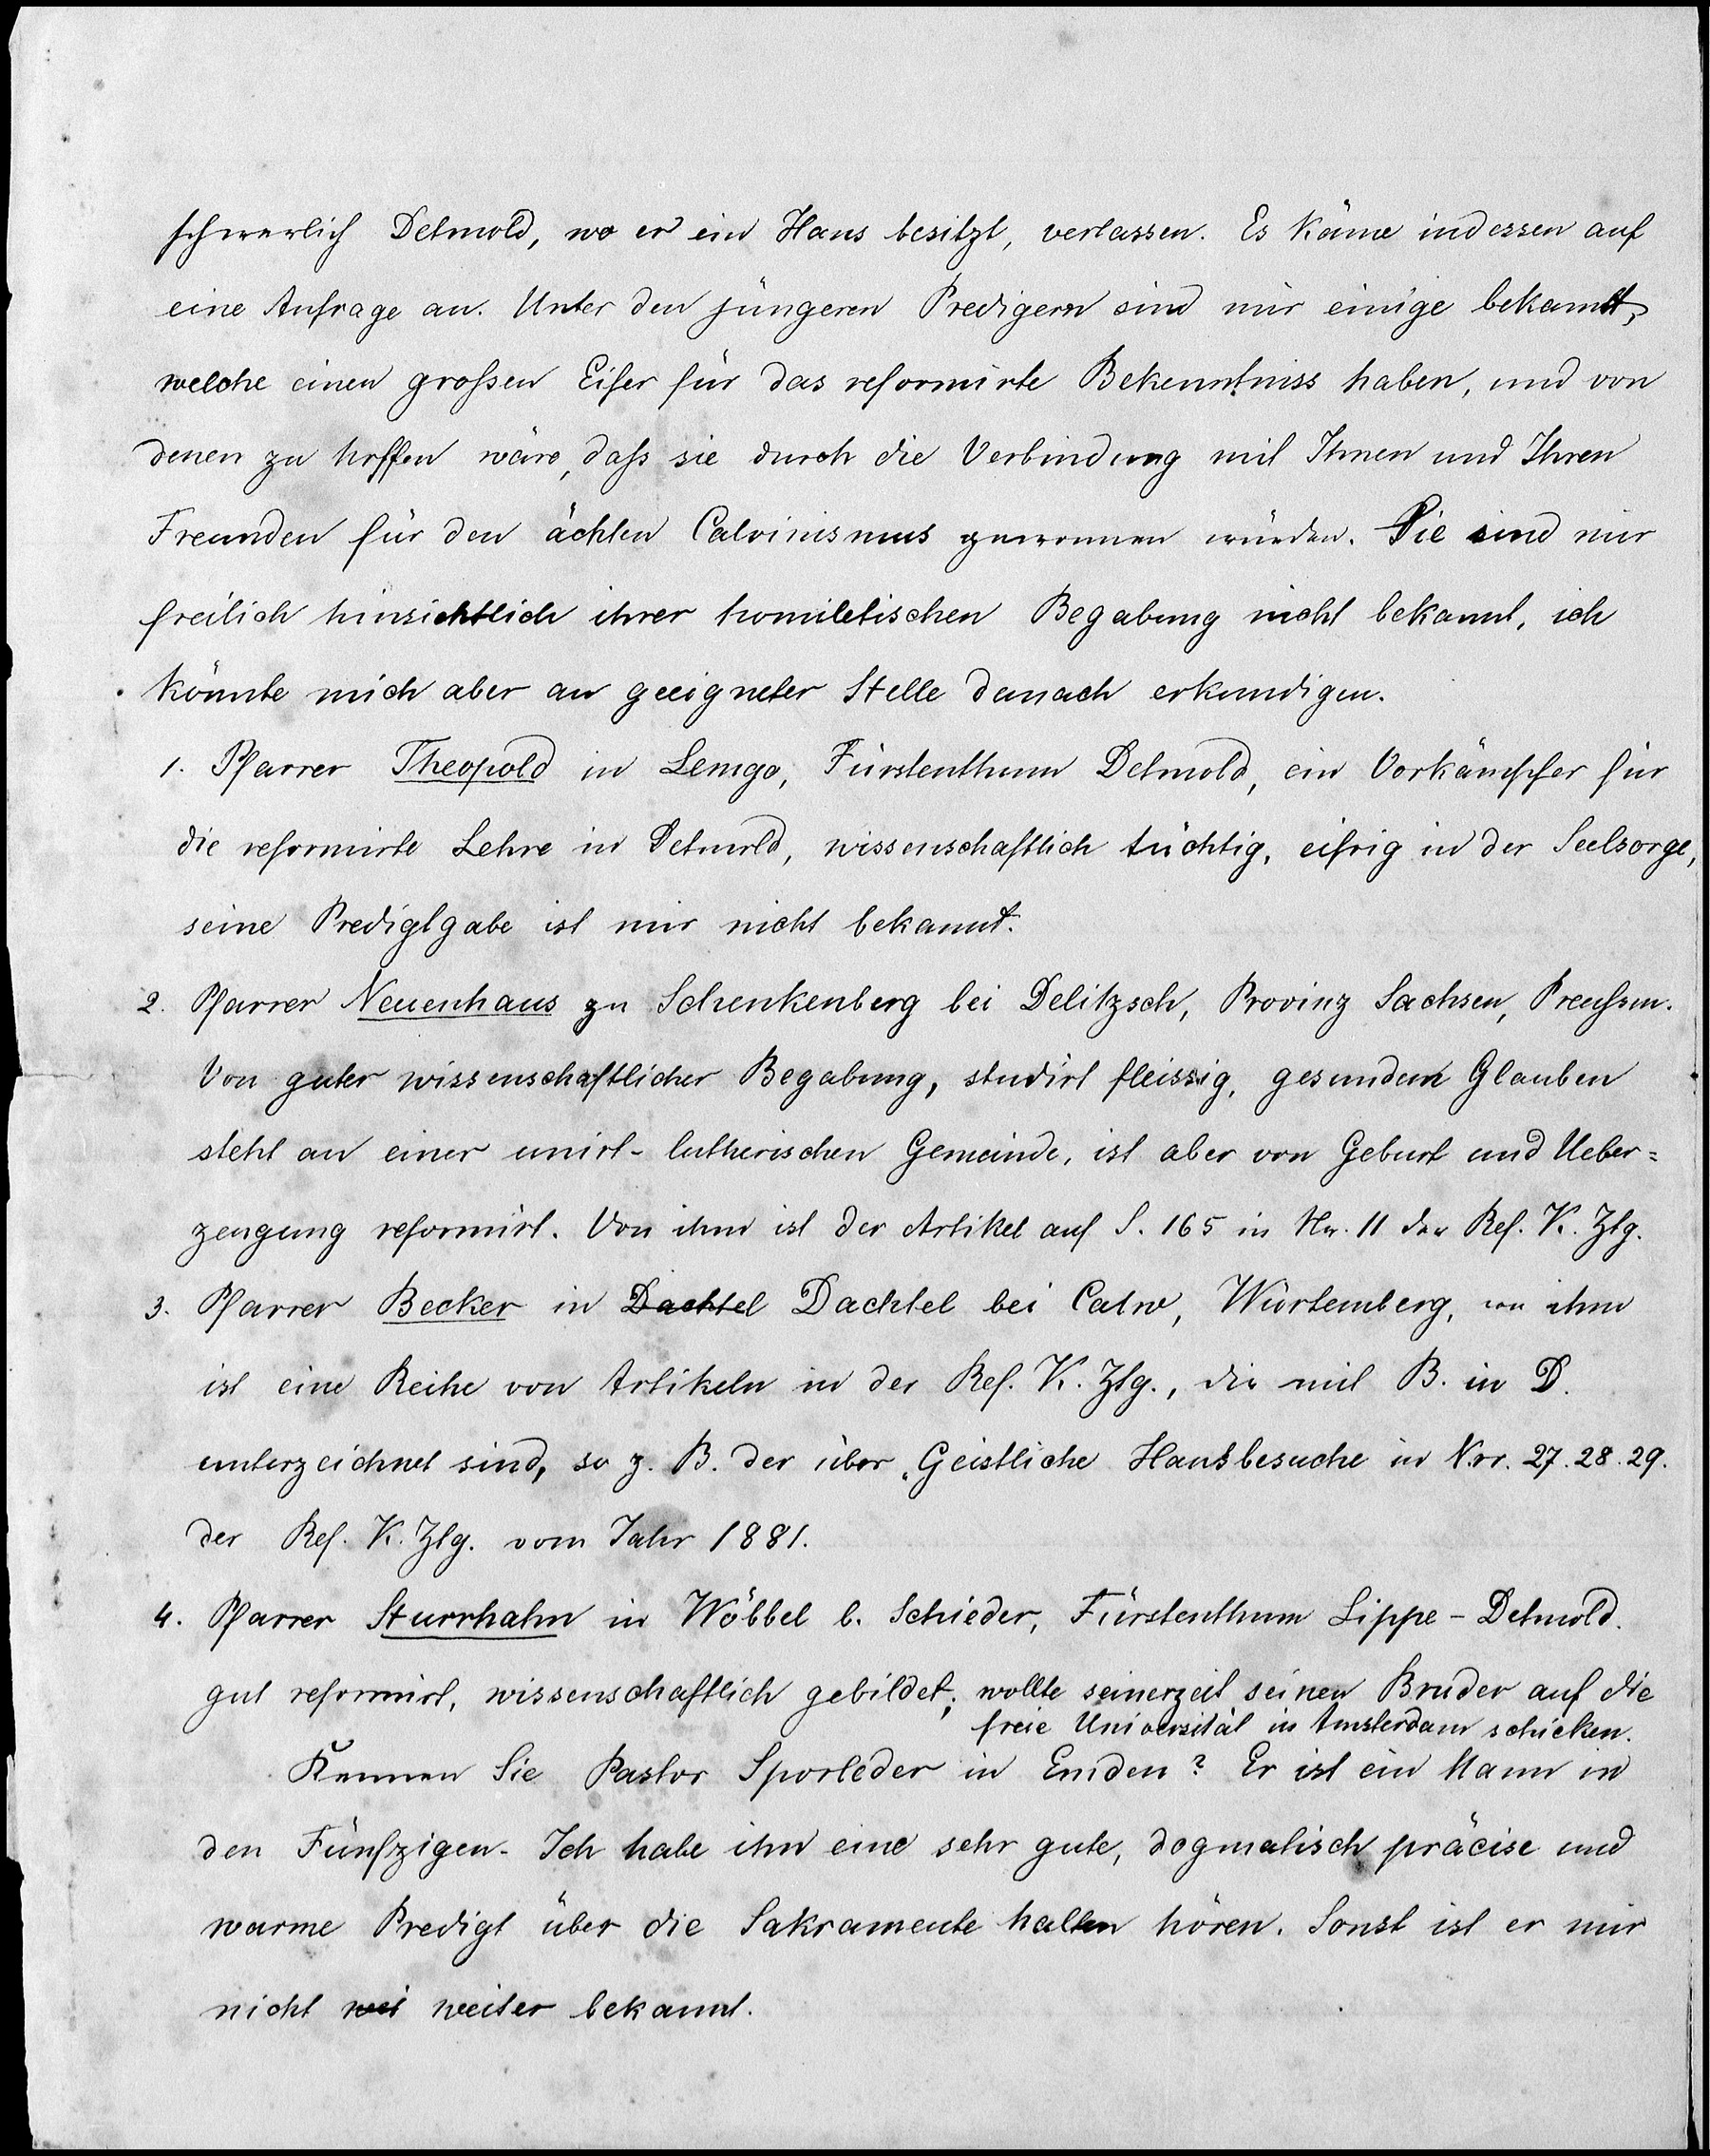 schwerlich Detmold, wo er ein Haus besitzt, verlassen. Es käme indessen auf
eine Anfrage an. Unter den jüngeren Predigern sind mir einige bekannt,
welche einen großen Eifer für das reformirte Bekenntniss haben, und von
denen zu hoffen wäre, daß sie durch die Verbindung mit Ihnen und Ihren
Freunden für den ächten Calvinismus gewonnen würden. Sie sind mir
freilich hinsichtlich ihrer homiletischen Begabung nicht bekannt, ich
könnte mich aber an geeigneter Stelle danach erkundigen.
1. Pfarrer Theopold in Lemgo, Fürstenthum Detmold, ein Vorkämpfer für
die reformirte Lehre in Detmold, wissenschaftlich tüchtig, eifrig in der Seelsorge,
seine Predigtgabe ist mir nicht bekannt.
2. Pfarrer Neuenhaus zu Schenkenberg bei Delitzsch, Provinz Sachsen, Preußen.
Von guter wissenschaftlicher Begabung, studirt fleissig, gesunden Glauben
steht an einer unirt-lutherischen Gemeinde, ist aber von Geburt und Ueber=
zeugung reformirt. Von ihm ist der Artikel auf S. 165 in Nr. 11 der Ref. K. Ztg.
3. Pfarrer Becker in Dachtel Dachtel bei Calw, Würtemberg, von ihm
ist eine Reihe von Artikeln in der Ref. K. Ztg., die mit B. in D.
unterzeichnet sind, so z. B. der über „Geistliche Hausbesuche in Nrr. 27. 28. 29.
der Ref. K. Ztg. vom Jahr 1881.
4. Pfarrer Sturrhahn in Wöbbel b. Schieder, Fürstenthum Lippe-Detmold.
gut reformirt, wissenschaftlich gebildet; wollte seinerzeit seinen Bruder auf die
freie Universität in Amsterdam schicken.
Kennen Sie Pastor Sporleder in Emden? Er ist ein Mann in
den Fünfzigen. Ich habe ihn eine sehr gute, dogmatisch präcise und
warme Predigt über die Sakramente halten hören. Sonst ist er mir
nicht wei weiter bekannt.